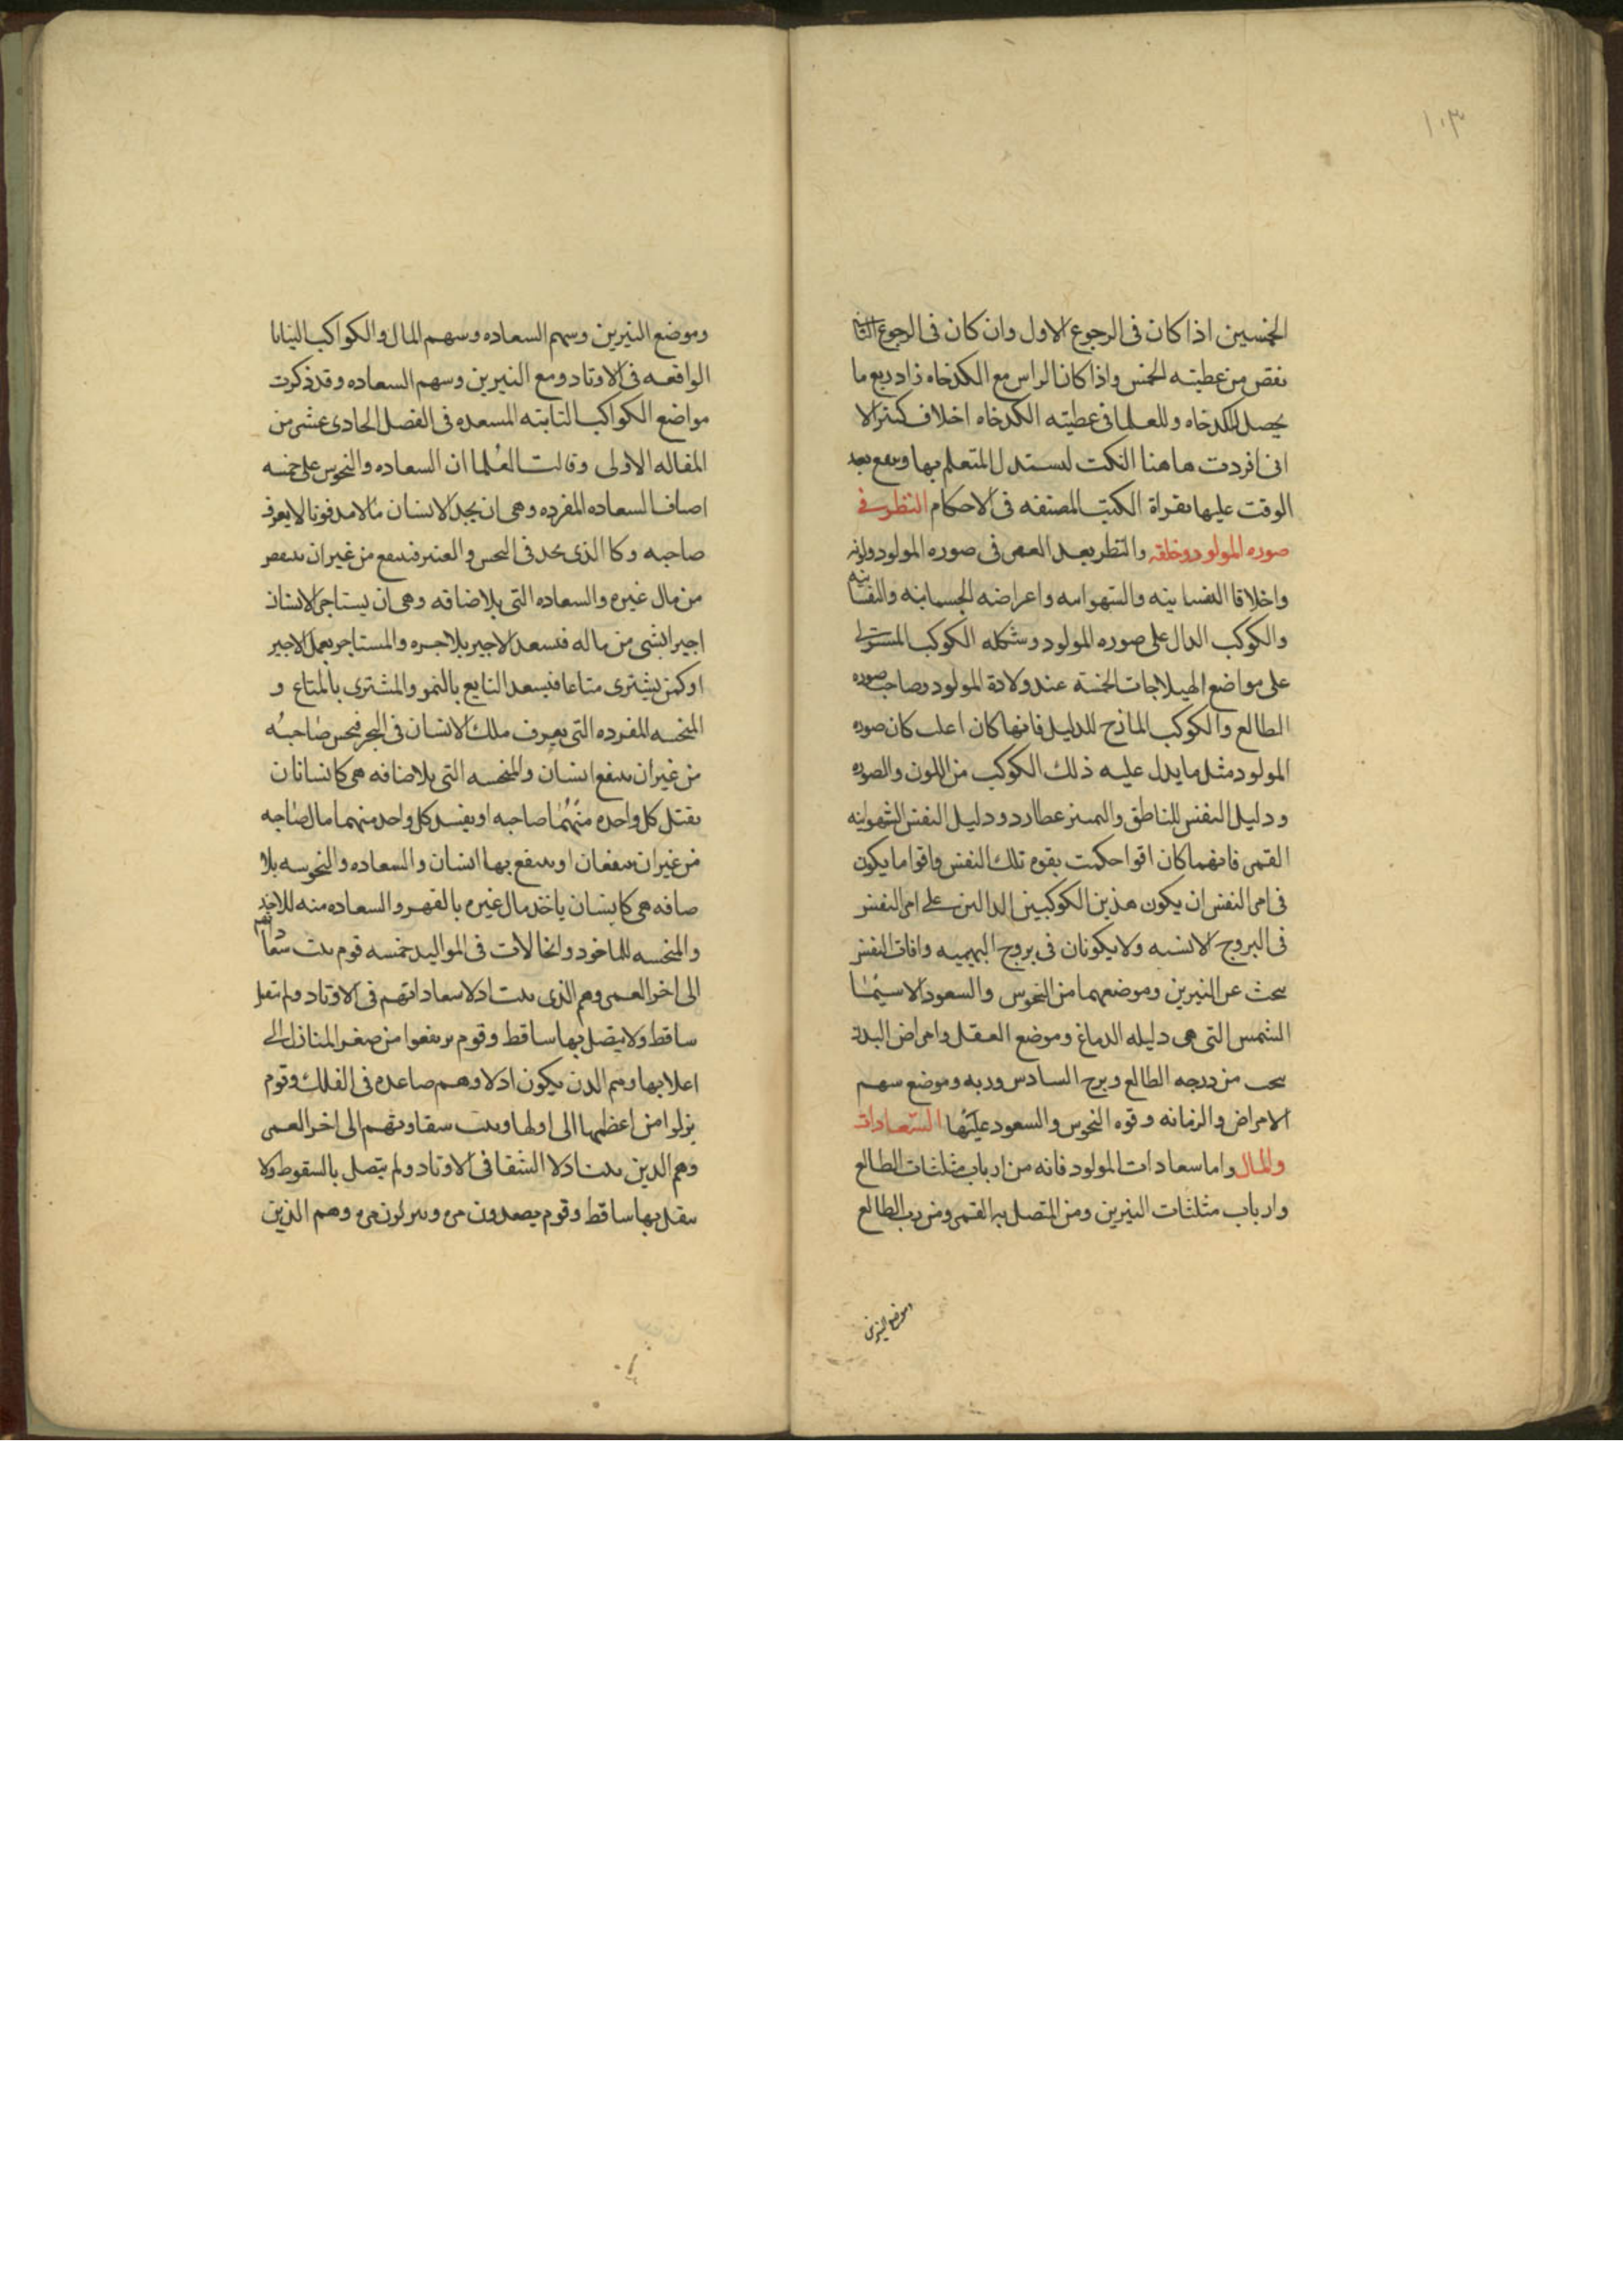 ١٠٣
الخمسين اذا كان فى الرجوع الاول وان كان فى الرجوع الثانى
نقص من عطيته الخمس واذا كان الراس مع الكدخاه زاد ربع ما
يحصل للكدخاه وللعلما فى عطيته الكدخاه اخلاف كثير الا
انى افردت هاهنا النكت ليستدل المتعلم بها ويقع بعد
الوقت عليها بقراة الكتب المصنفه فى الاحكام النظر فى
صوره المولود وخلقه والنظر بعد العمر فى صوره المولود ولونه
واخلاقا النفسانيه والشهوانيه واعراضه الجسمانيه والنفسانيه
والكوكب الدال على صوره المولود وشكله الكوكب المستولى
على مواضع الهيلاجات الخمسة عند ولادة المولود وصاحب صوره
الطالع والكوكب المازج للدليل فانها كان اغلب كان صوره
المولود مثل ما يدل عليه ذلك الكوكب من اللون والصوره
ودليل النفس للناطق والتميز عطارد ودليل النفس الشهوانيه
القمر فانهما كان اقوا حكمت بقوه تلك النفس واقوا ما يكون
فى امر النفس ان يكون هذين الكوكبين الدالين على امر النفس
فى البروج الانسيه ولا يكونان فى بروج البهيميه وافات النفس
يبحث عن النيرين وموضعهما من النحوس والسعود لاسيما
الشمس التى هى دليله الدماغ وموضع العقل وامراض البدن
يبحث من درجه الطالع وبرج السادس وربه وموضع سهم
الامراض والزمانه وقوه النحوس والسعود عليها السعادات
والمال واما سعادات المولود فانه من ارباب مثلثات الطالع
وارباب مثلثات النيرين ومن المتصل به القمر ومن رب الطالع
وموضع النيرين
وموضع النيرين وسهم السعاده وسهم المال والكواكب البيابانيا
الواقعه فى الاوتاد ومع النيرين وسهم السعاده وقد ذكرت
مواضع الكواكب الثابته المسعده فى الفصل الحادى عشر من
المقاله الاولى وقالت العلما ان السعاده والنحوس على خمسه
اصناف السعاده المفرده وهى ان يجد الانسان مالا مدفونا لا يعرف
صاحبه وكا الذى يجد فى البحر والعنبر فينتفع من غير ان ينقص
من مال غيره والسعاده التى بلاضافه وهى ان يستاجر الانسان
اجيرا بشى من ماله فيسعد الاجير بلاجره والمستاجر بعمل الاجير
او كمن يشترى متاعا فيسعد البايع بالثمن والمشترى بالمتاع و
المنحسه المفرده التى يعرف ملك الانسان فى البحر فينحس صاحبه
من غير ان ينتفع انسان والمنحسه التى بلاضافه هى كانسانان
يقتل كل واحده منهما صاحبه او يفسد كل واحد منهما مال صاحبه
من غير ان ينتفعان او ينتفع بها انسان والسعاده والنحوسه بلا
ضافه هى كانسان ياخذ مال غيره بالقهر والسعاده منه للاخذ
والمنحسه للماخود وانحالات فى المواليد خمسه قوم يثبت سعاداتهم
الى اخر العمر وهم الذى يثبت ادلا سعاداتهم فى الاوتاد ولم تقبل
ساقط ولا يتصل بها ساقط وقوم يرتفعوا من صغر المنازل الى
اعلايها وهم الدين يكون ادلاوهم صاعده فى الفلك وقوم
نزلوا من اعظمها الى اولها ويثبت سقاوتهم الى اخر العمر
وهم الدين يثبت ادلا الشقا فى الاوتاد ولم يتصل بالسقوط ولا
يتصل بها ساقط وقوم يصعدون مره وينزلون مره وهم الذين